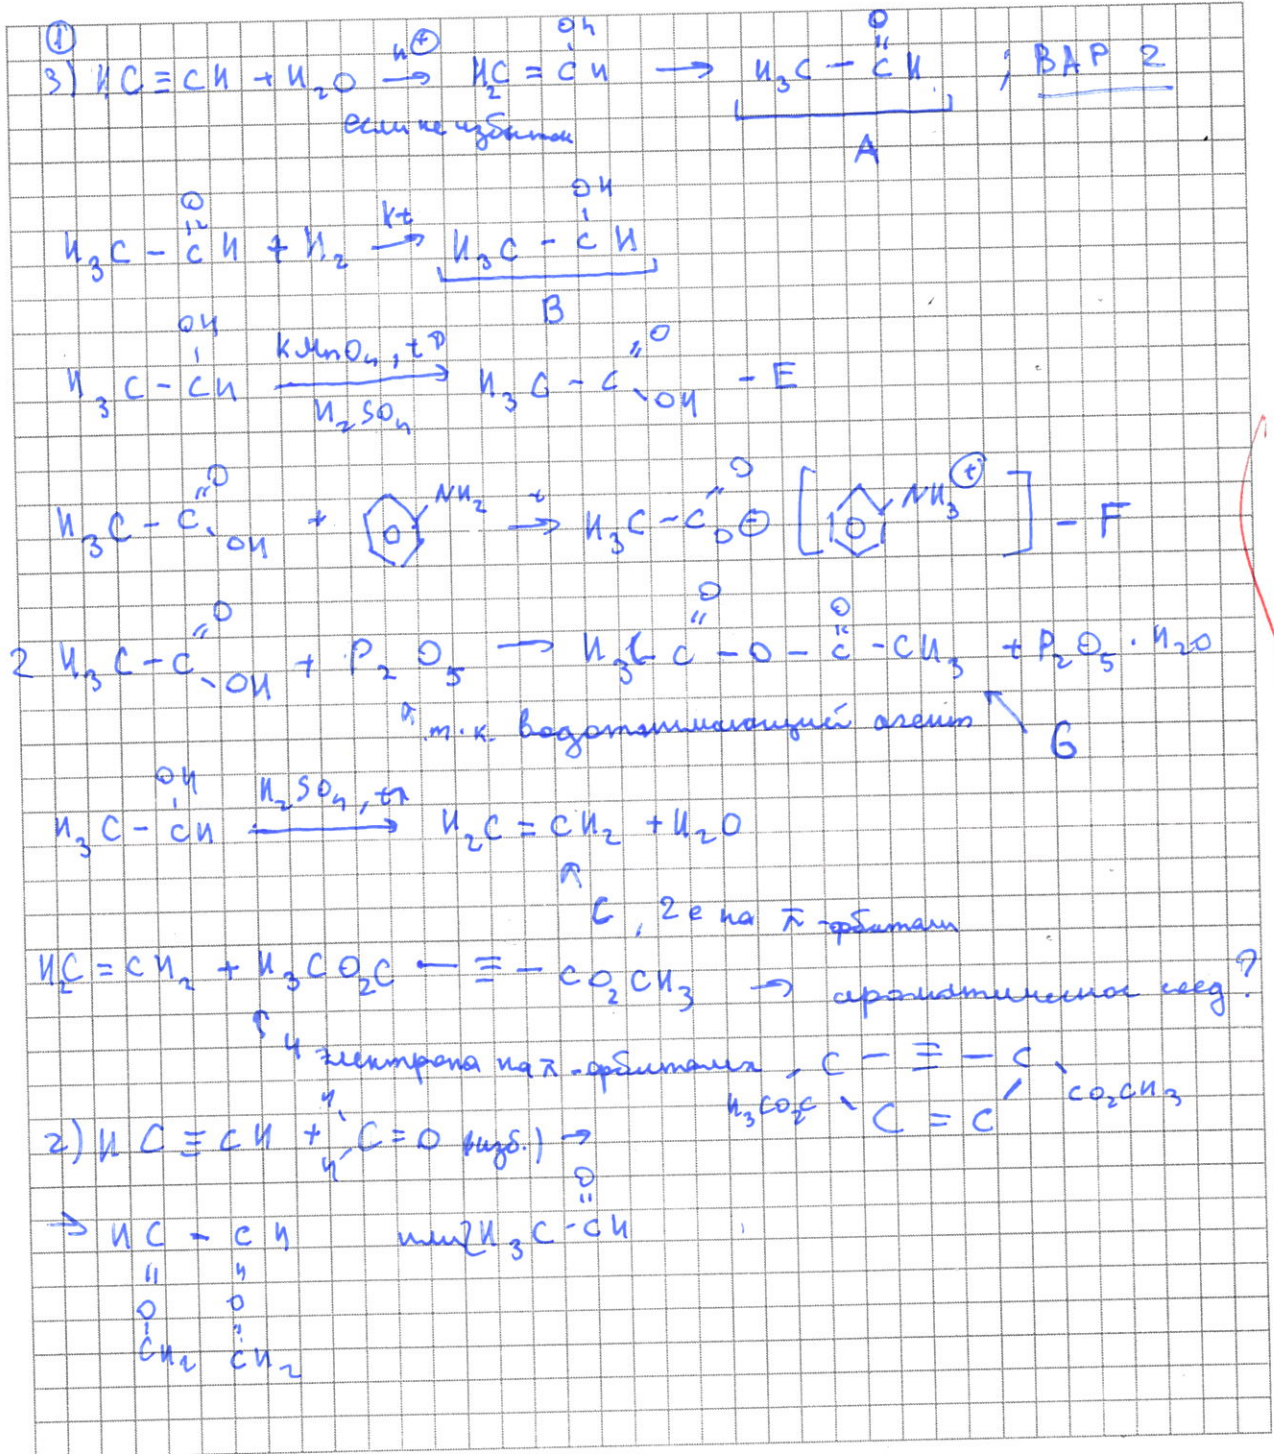 ①
3) HC ≡ CH + H₂O —H⊕→ H₂C = C(OH)H → H₃C – C(=O)H ; ВАР 2
если не избыток
A
H₃C – C(=O)H + H₂ —kt→ H₃C – C(OH)H
B
H₃C – C(OH)H —KMnO₄, t°, H₂SO₄→ H₃C – C(=O)OH – E
H₃C – C(=O)OH + NH₂ —t→ H₃C – C(=O)O⊖ [NH₃⊕] – F
2 H₃C – C(=O)OH + P₂O₅ → H₃C – C(=O) – O – C(=O) – CH₃ + P₂O₅ · H₂O
т.к. водоотнимающий агент G
H₃C – C(OH)H —H₂SO₄, t→ H₂C = CH₂ + H₂O
C, 2e на π-орбитали
H₂C = CH₂ + H₃CO₂C – ≡ – CO₂CH₃ → ароматическое соед?
4 электрона на π-орбиталях, C – ≡ – C
H₃CO₂C C = C CO₂CH₃
2) HC ≡ CH + H H C = O (изб.) →
→ HC – CH или 2H₃C – C(=O)H
O O
CH₂ CH₂